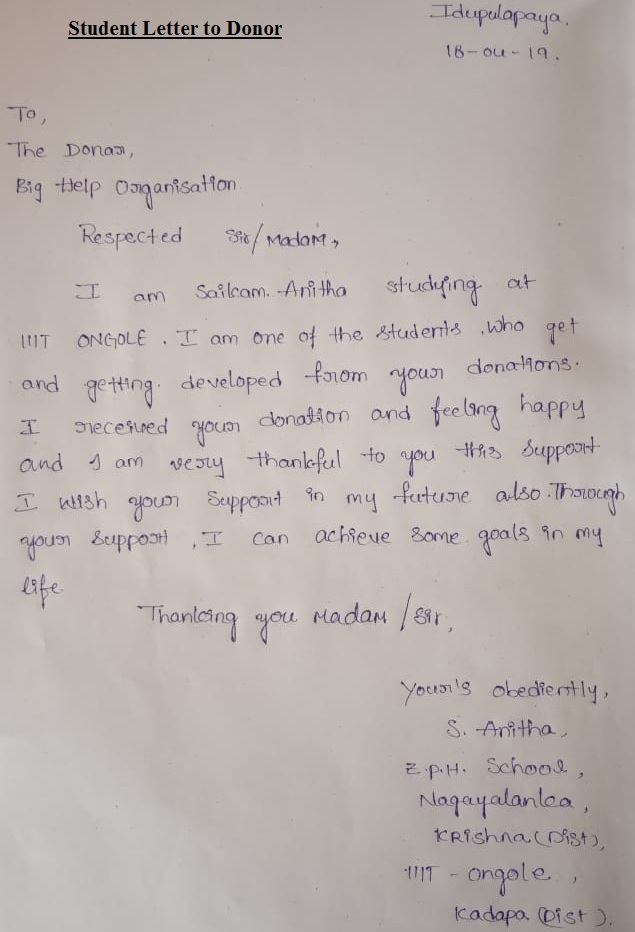 Student Letter to Donor
Idupulapaya,
18-04-19.
To,
The Donar,
Big Help Organisation
Respected Sir/Madam,
I am Sailcam. Anitha studying at
IIIT ONGOLE. I am one of the students, who get
and getting. developed from your donations.
I received your donation and feeling happy
and I am very thankful to you this Support
I wish your Support in my future also. Through
your Support, I can achieve some goals in my
life.
Thanking you Madam/Sir,
Your's obediently,
S. Anitha,
Z.P.H. School,
Nagayalanka,
KRishna (Dist),
IIIT - ongole,
Kadapa (Dist).